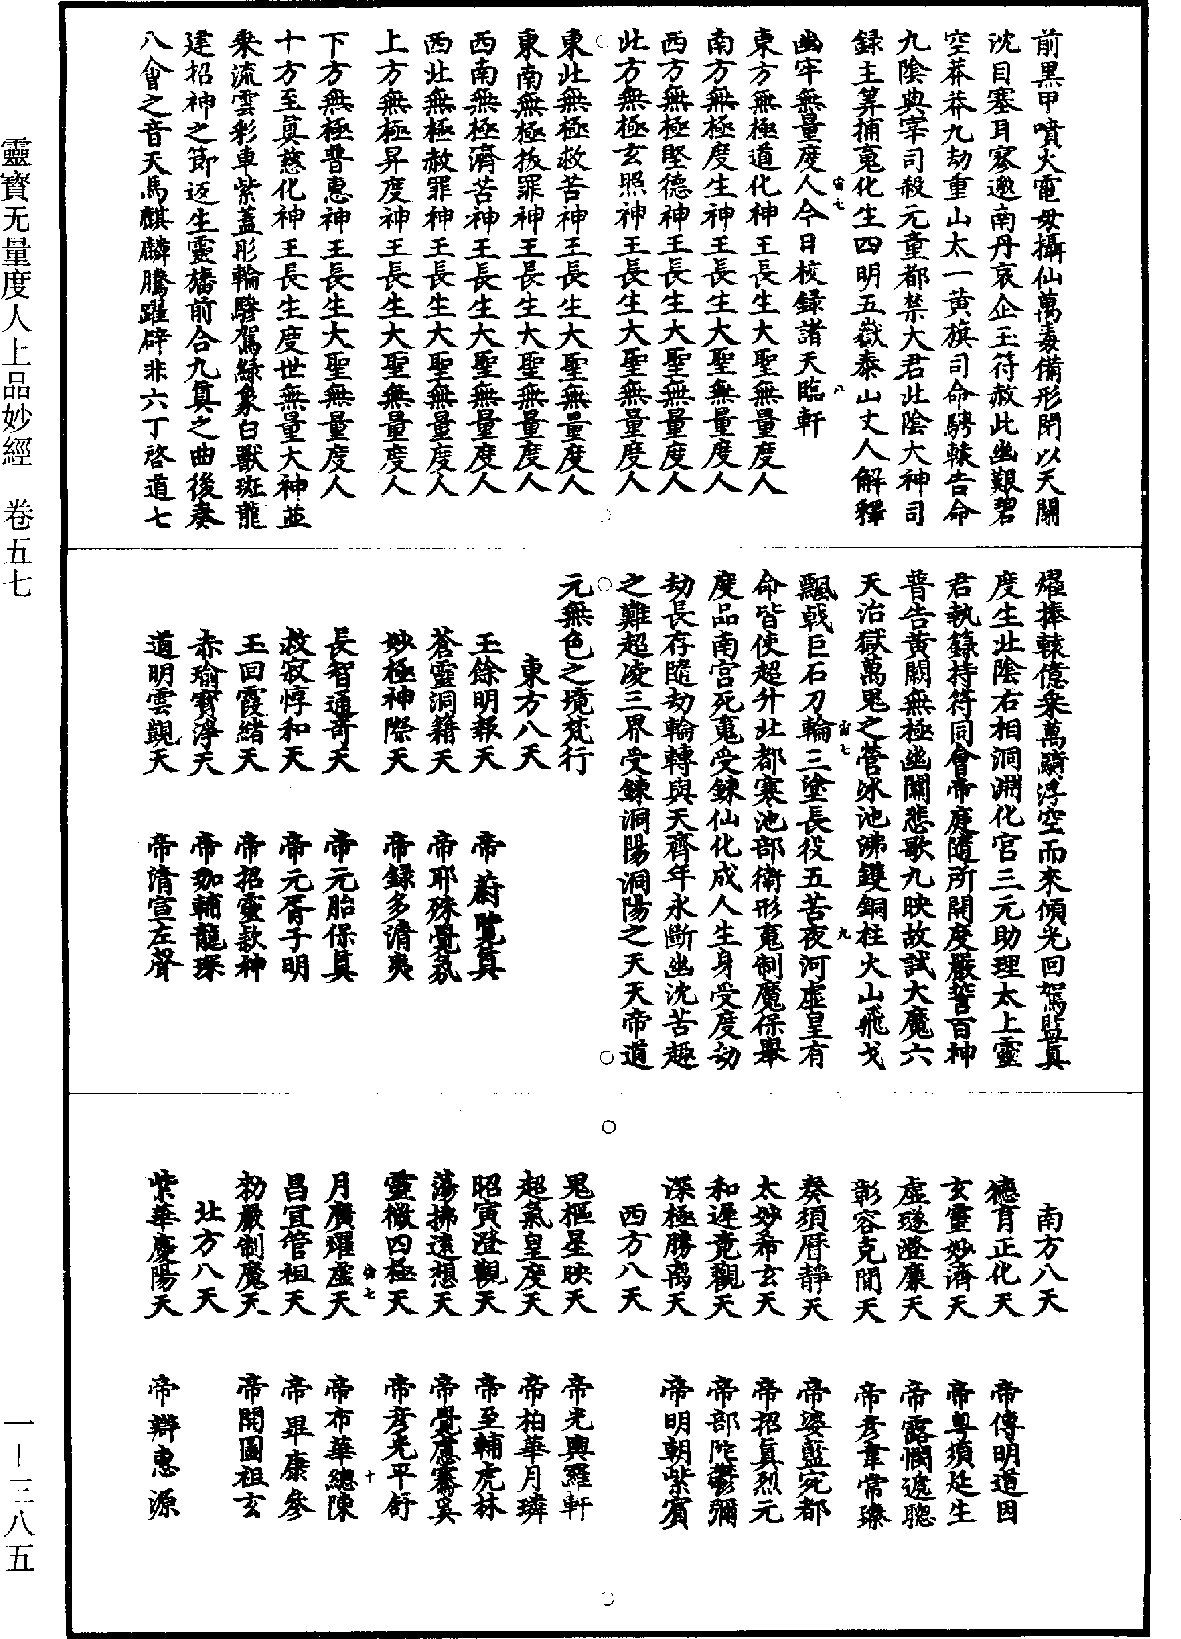 靈寶无量度人上品妙經　卷五七
一—三八五
前黑甲噴火電毋攝仙萬毒備形閉以天關
沈目塞耳寥邈南丹哀企玉符赦此幽艱碧
空莽莽九劫重山太一黃旗司命騁轅告命
九陰典宰司殺元童都禁大君北陰大神司
録主筭捕䰟化生四明五嶽泰山丈人解釋
幽牢無量度人今日校録諸天臨軒
東方無極道化神王長生大聖無量度人
南方無極度生神王長生大聖無量度人
西方無極堅德神王長生大聖無量度人
北方無極玄照神王長生大聖無量度人
東北無極救苦神王長生大聖無量度人
東南無極拔罪神王長生大聖無量度人
西南無極濟苦神王長生大聖無量度人
西北無極赦罪神王長生大聖無量度人
上方無極昇度神王長生大聖無量度人
下方無極普惠神王長生大聖無量度人
十方至真慈化神王長生度世無量大神並
乘流雲彩車紫蓋彤輪驂駕緑象白獸斑龍
建招神之節迈生靈旛前合九真之曲後奏
八會之音天馬麒麟騰躍辟非六丁啓道七
燿捧轅億乘萬騎浮空而來傾光回駕監真
度生北陰右相洞淵化官三元助理太上靈
君執籙持符同會帝庭隨所開度嚴誓百神
普告黃關無極幽關悲歌九映故試大魔六
天治獄萬鬼之營冰池沸鑊銅柱火山飛戈
飄戟巨石刀輪三塗長役五苦夜河虛皇有
命皆使超升北都寒池部衛形䰟制魔保舉
度品南宮死䰟受鍊仙化成人生身受度劫
劫長存隨劫輪轉與天齊年永斷幽沈苦趣
之難超凌三界受鍊洞陽洞陽之天天帝道
元無色之境梵行
東方八天
玉餘明報天　帝蔚覽真
蒼靈洞籍天　帝耶殊覺氛
妙極神際天　帝録多清夷
長智通奇天　帝元胎保真
救寂惇和天　帝元胥子明
玉回霞緒天　帝招靈歘神
赤瑜寶淨天　帝珈輔龍琛
道明雲觀天　帝清宣左聲
南方八天
德育正化天　帝傅明道因
玄靈妙濟天　帝粵須延生
虛䜢澄廉天　帝露憫遮聰
彰容克簡天　帝彦韋常璨
奏須曆靜天　帝婆藍宛都
太妙希玄天　帝招真烈元
和遲竟觀天　帝部陀鬱彌
深極勝离天　帝明朝紫賓
西方八天
鬼樞星映天　帝光輿羅軒
超氣皇度天　帝柏華月璘
昭寅澄觀天　帝至輔虎林
蕩拂遠想天　帝覺應騫奚
靈微四極天　帝彦光平舒
月廣曜虛天　帝布華總陳
昌冝管祖天　帝畢康參
勑嚴制魔天　帝開圖祖玄
北方八天
紫華慶陽天　帝辯惠源